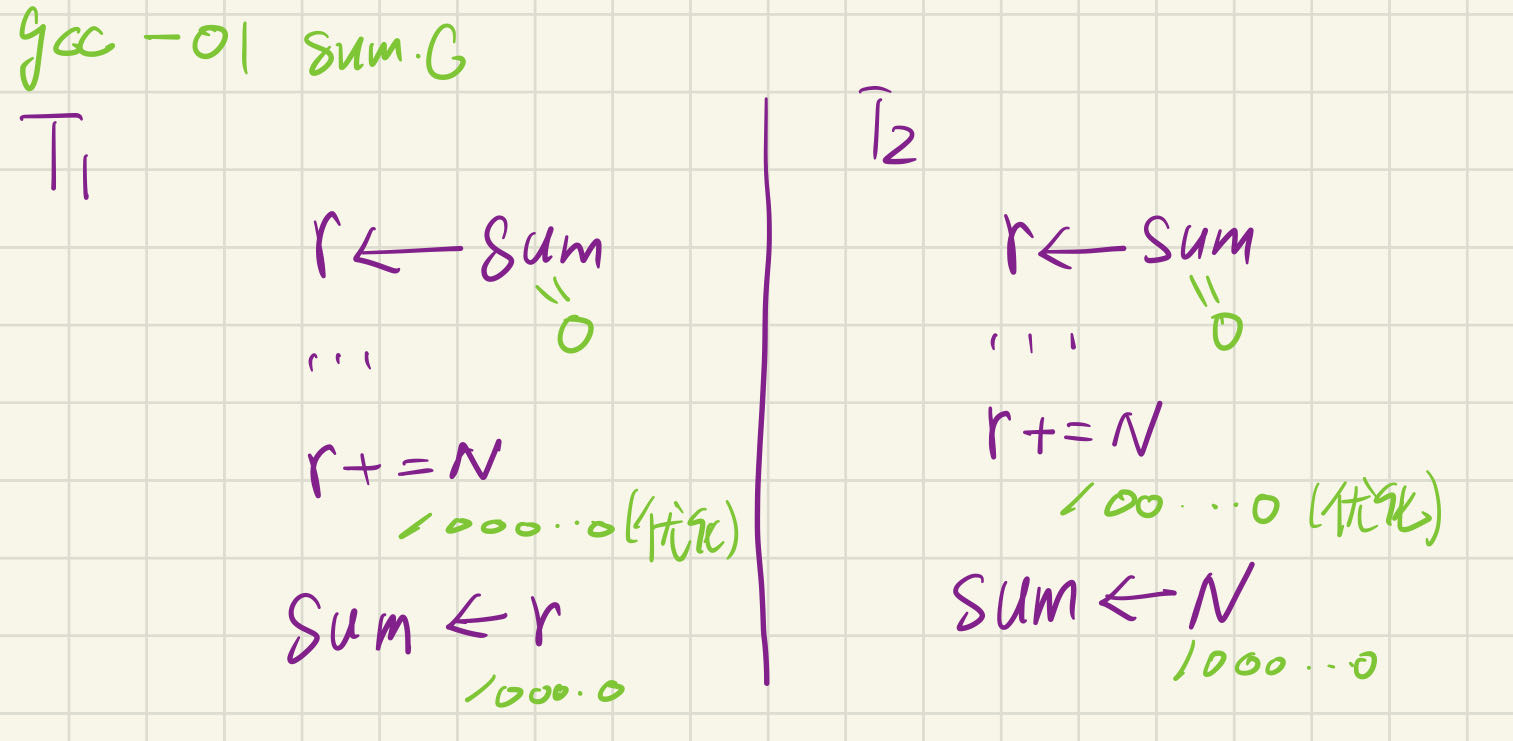 gcc -O1 sum.c
T1
r ← sum
= 0
...
r += N
1000...0 (优化)
sum ← r
1000.0
T2
r ← sum
= 0
...
r += N
100...0 (优化)
sum ← N
1000...0